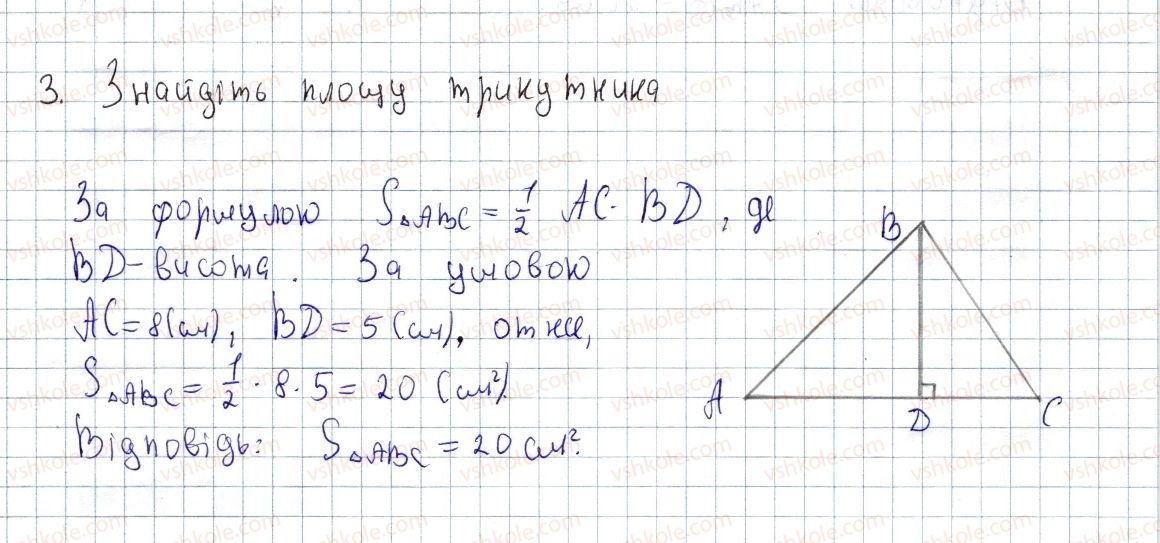 3. Знайдіть площу трикутника
За формулою S△ABC = 1/2 AC · BD, де
BD – висота. За умовою
AC = 8 (см), BD = 5 (см), отже,
S△ABC = 1/2 · 8 · 5 = 20 (см²).
Відповідь: S△ABC = 20 см².
B
A
D
C
vshkole.com